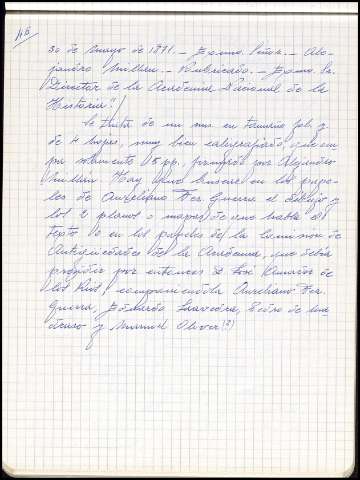 46
30 de Mayo de 1871. — Excmo. Señor. — Ale-
jandro Millán. — Rubricado. — Excmo. Sr.
Director de la Academia Nacional de la
Historia."/
Se trata de un ms en tamaño fol. y
de 4 hojas, muy bien caligrafiado, que ocu-
pa solamente 5 pp., firmado por Alejandro
Millán. Hay que buscar en los pape-
les de Aureliano Fer. Guerra el dibujo y
los 2 planos o mapas de que habla el
texto o en los papeles de la Comisión de
Antigüedades de la Academia, que debía
presidir por entonces D. José Amador de
los Ríos, componiéndola Aureliano Fer.
Guerra, Eduardo Saavedra, Pedro de Ma-
drazo y Manuel Oliver (?)